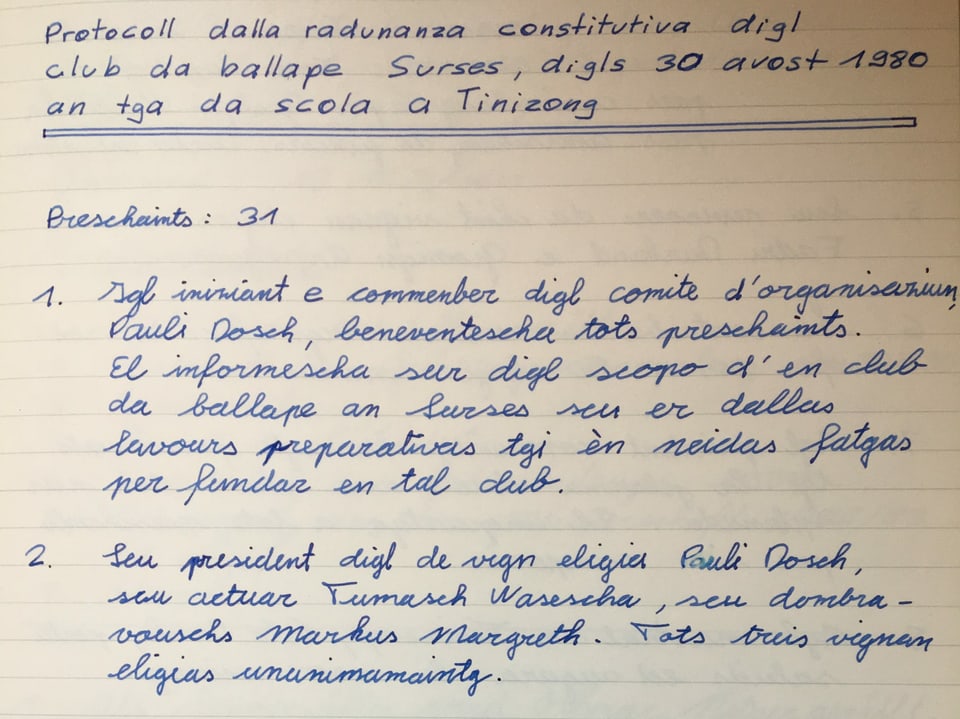 Protocoll dalla radunanza constitutiva digl
club da ballape Surses, digls 30 avost 1980
an tga da scola a Tinizong
Preschaints: 31
1. Igl iniziant e commenber digl comite d'organisaziun,
Pauli Dosch, beneventescha tots preschaints.
El informescha sur digl scopo d'en club
da ballape an Surses scu er dallas
lavours preparativas tgi èn neidas fatgas
per fundar en tal club.
2. Scu president digl de vign eligia Pauli Dosch,
scu actuar Tumasch Wasescha, scu dombra-
vouschs Markus Margreth. Tots treis vignan
eligias unanimamaintg.